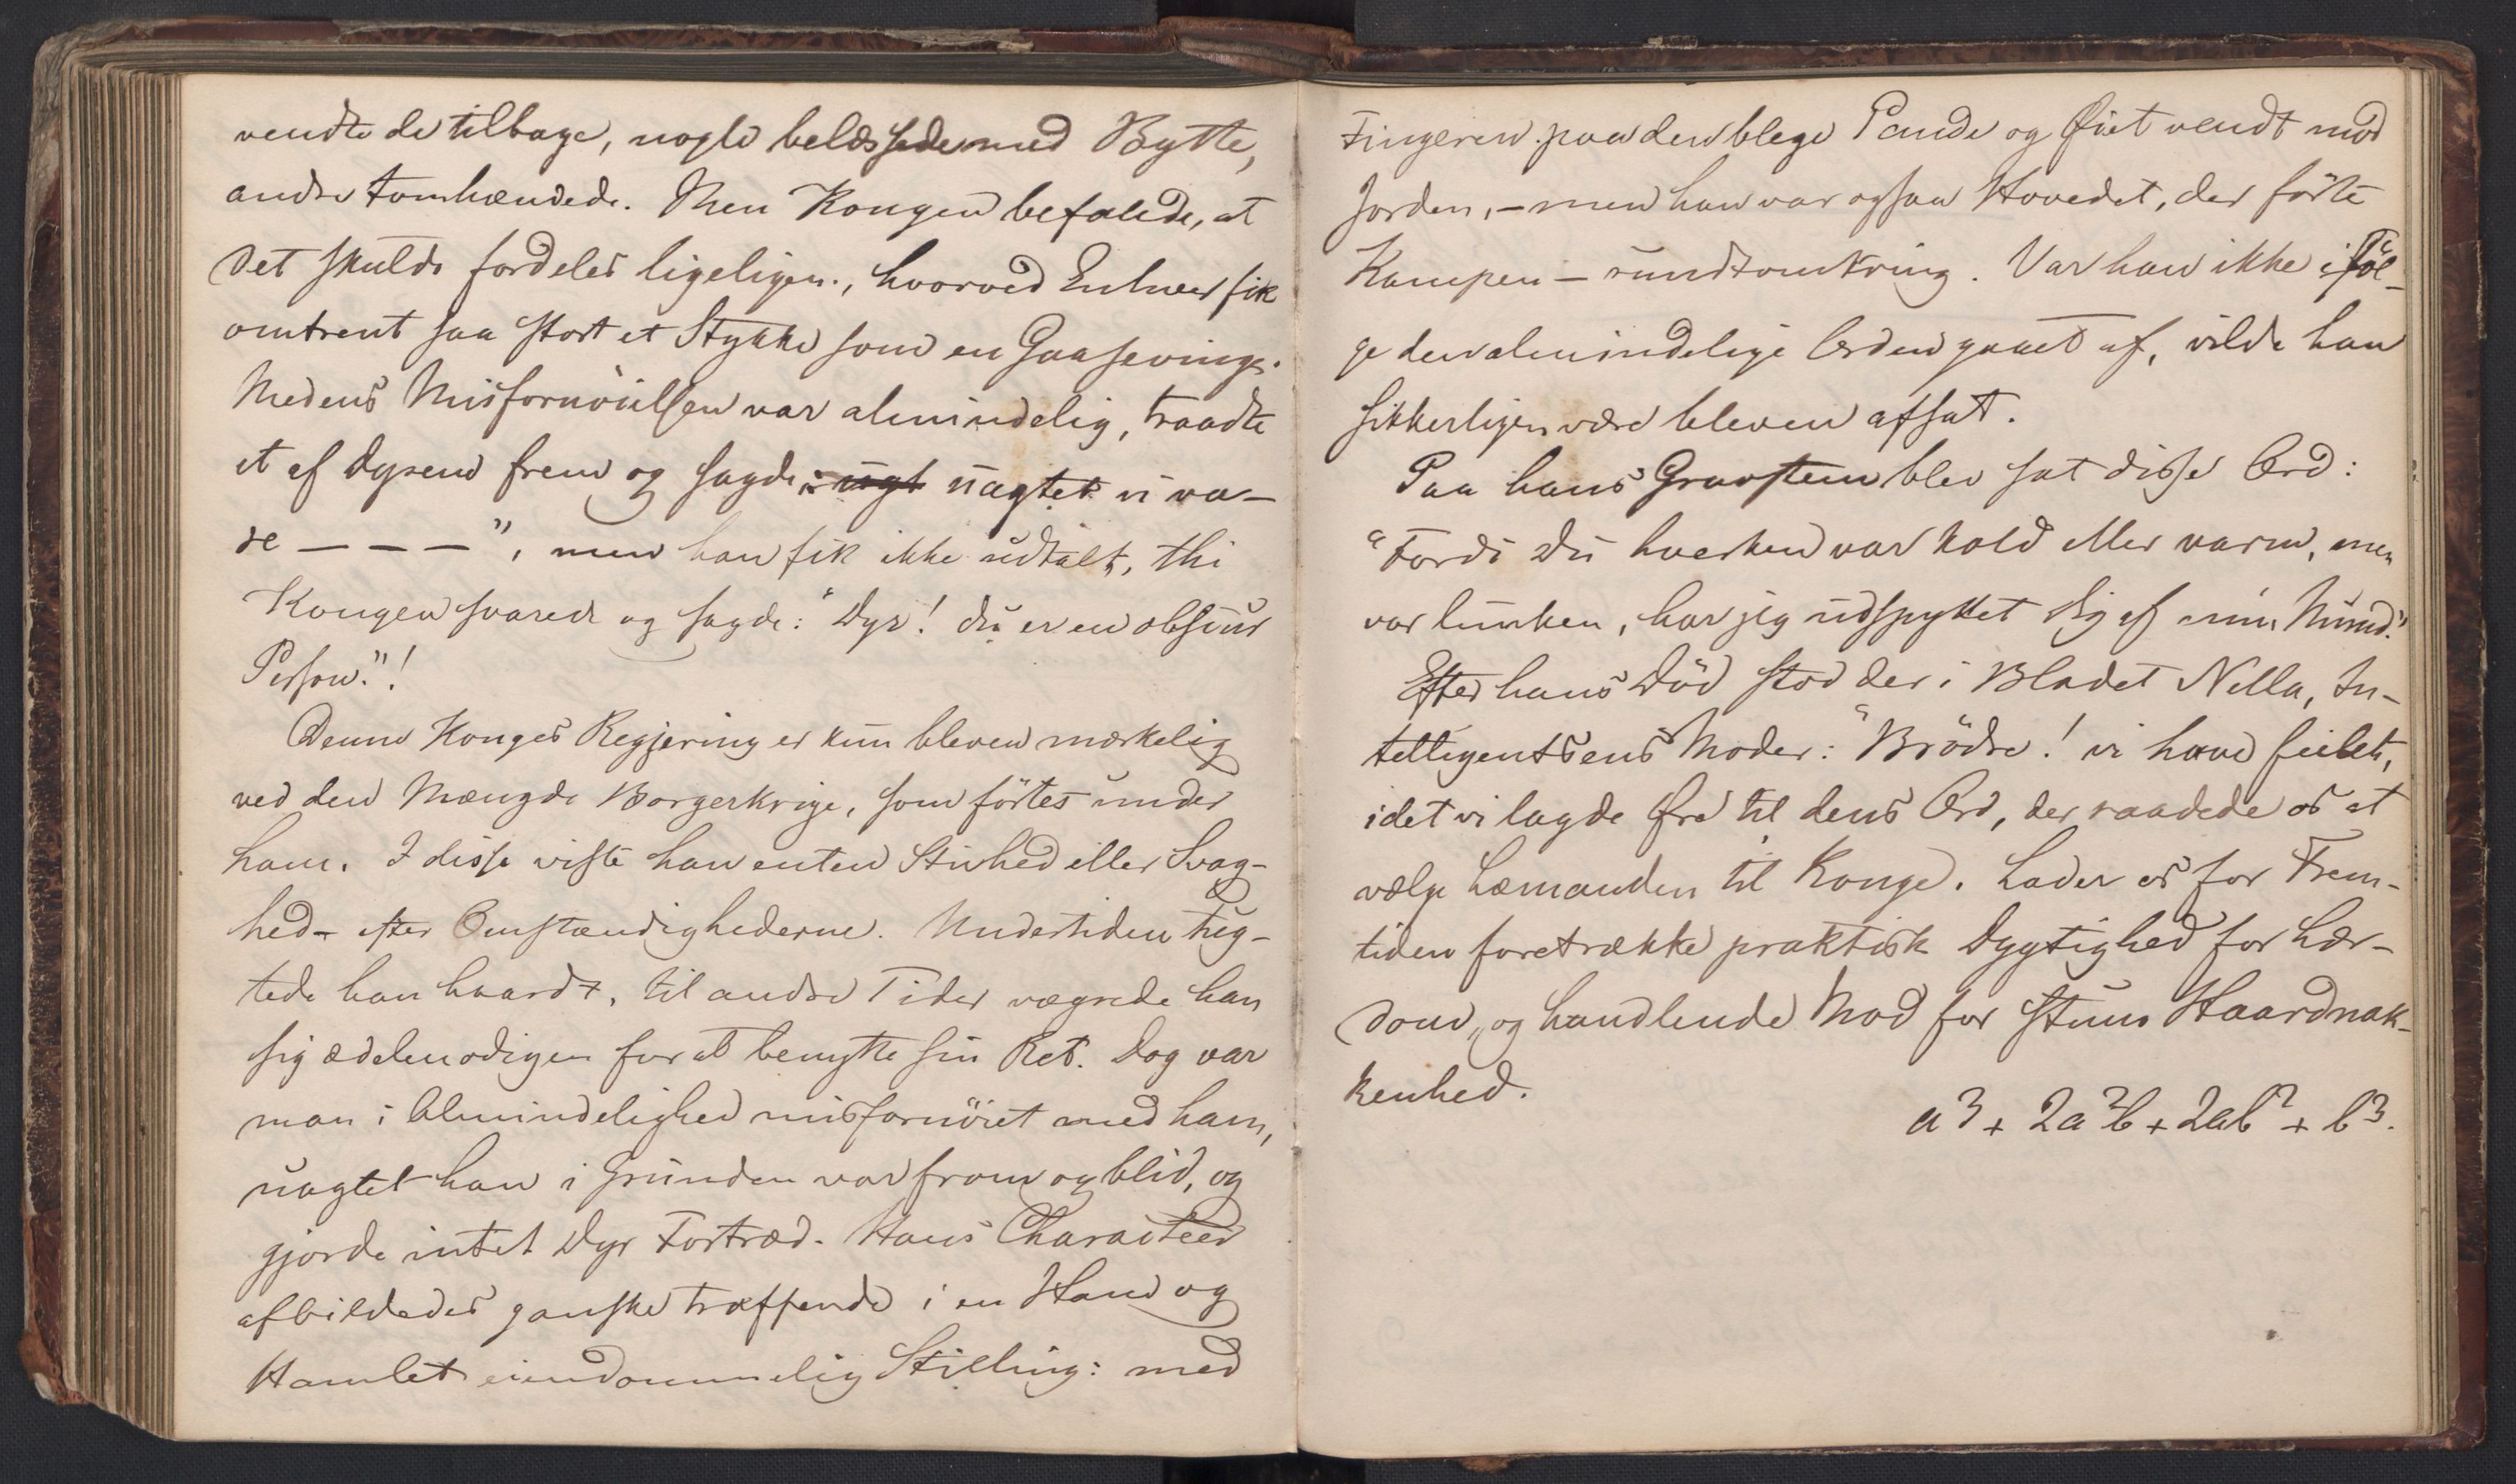 vendte de tilbage, nogle belæssede med Bytte,
andre tomhændede. Men Kongen befalede, at
det skulde fordeles ligeligen., hvorved Enhver fik
omtrent saa stort et Stykke som en Gaasevinge.
Medens Misfornöielsen var almindelig, traadte
et af Dyrene frem og sagde: ugt uagtet vi va-
re – – – ", men han fik ikke udtalt, thi
Kongen svarede og sagde: "Dyr! du er en obscur
Person."!
Denne Konges Regjering er kun bleven mærkelig
ved den Mængde Borgerkrige, som förtes under
ham. I disse viste han enten Stivhed eller Svag-
hed – efter Omstændighederne. Undertiden tug-
tede han haardt, til andre Tider vægrede han
sig ædelmodigen for at benytte sin Ret. Dog var
man i Almindelighed misfornöiet med ham,
uagtet han i Grunden var from og blid, og
gjorde intet Dyr Fortræd. Hans Characteer
afbildedes ganske træffende i en Hand og
Hamlet eiendommelig Stilling: med
Fingeren paa den blege Pande og Öiet vendt mod
Jorden, – men han var ogsaa Hovedet, der förte
Kampen – rundtomkring. Var han ikke i föl-
ge den almindelige Orden gaaet af, vilde han
sikkerligen være bleven afsat.
Paa hans Gravsteen blev sat disse Ord:
"Fordi Du hverken var kold eller varm, men
var lunken, har jeg udspyttet dig af min Mund."
Efter hans Död stod der i Bladet Nella, In-
telligentsens Moder: "Brödre! vi have feilet,
idet vi lagde Öre til dens Ord, der raadede os at
vælge Hæmanden til Konge. Lader os for Frem-
tiden foretrække praktisk Dygtighed for Lær-
dom, og handlende Mod for stum Haardnak-
kenhed.
a³ + 2a²b + 2ab² + b³.